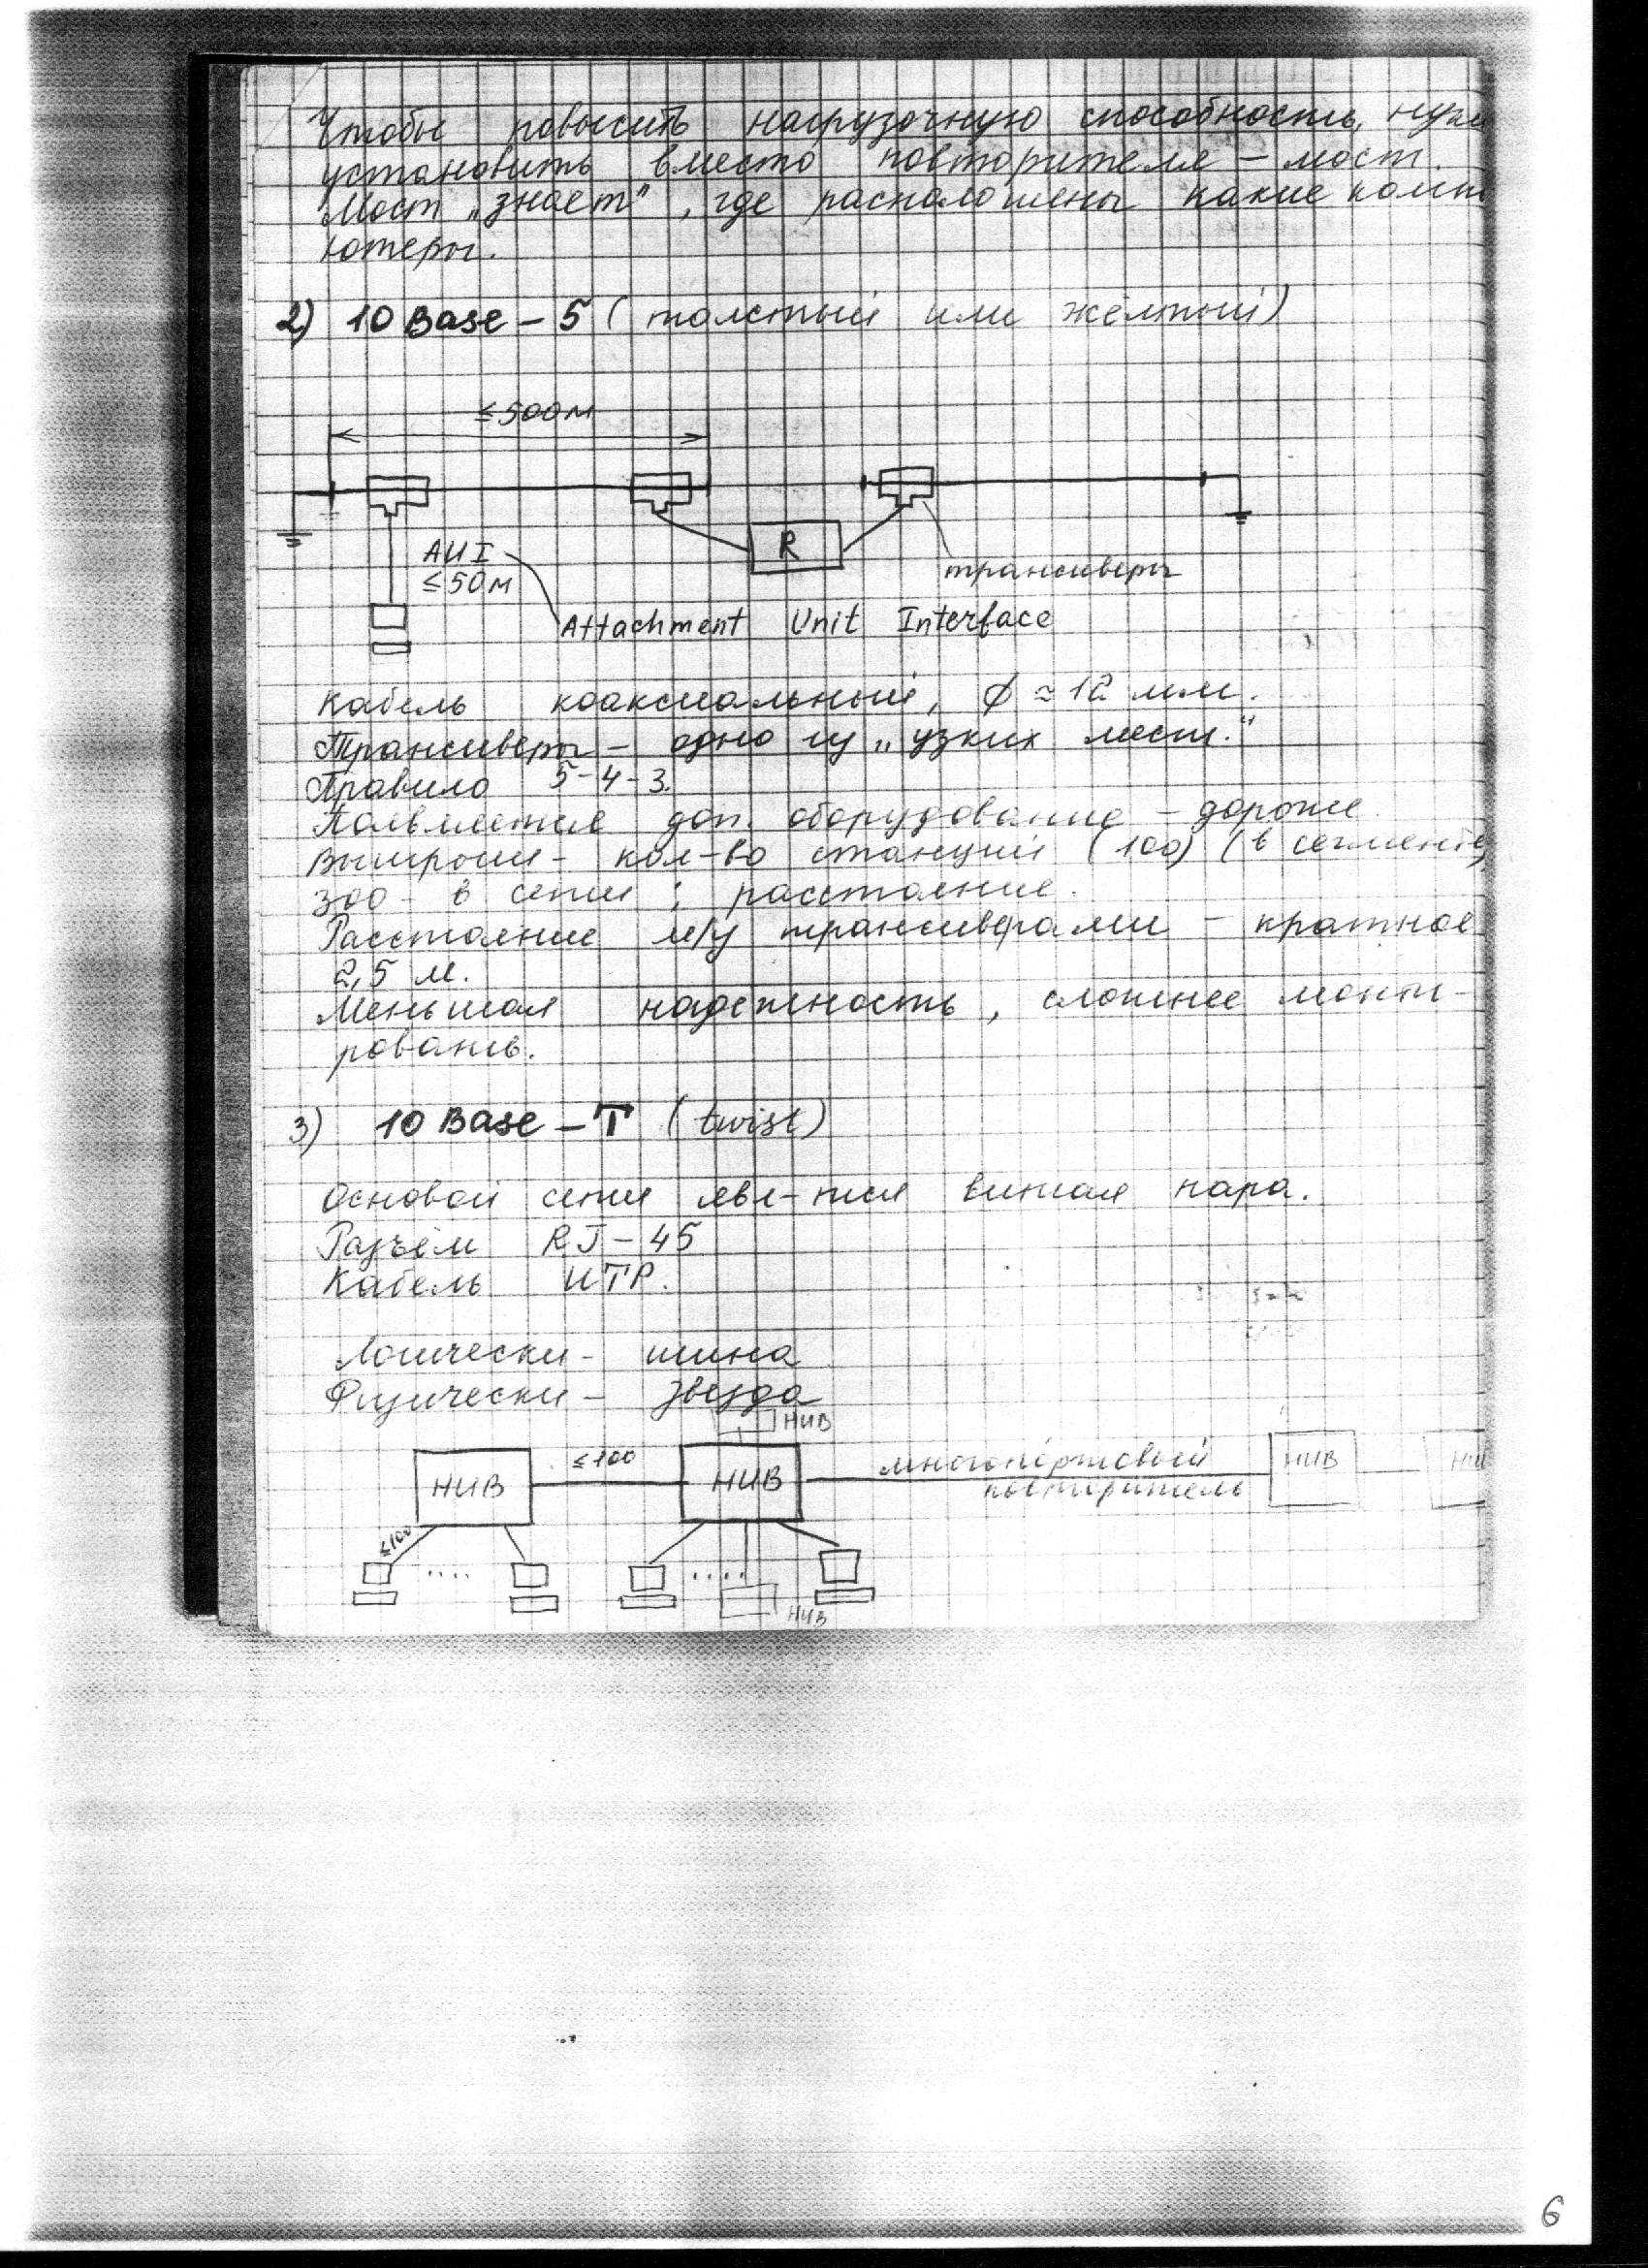 Чтобы повысить нагрузочную способность, нужн
установить вместо повторителя – мост.
Мост „знает“, где расположены какие комп
ютеры.
2) 10 Base – 5 ( толстый или жёлтый)
≤500м
R
AUI
≤50м
трансиверы
Attachment Unit Interface
Кабель коаксиальный, ϕ ≈ 12 мм.
Трансиверы – одно из „узких мест.“
Правило 5-4-3.
Появляется доп. оборудование – дороже
Выигрыш – кол-во станций (100) (в сегменте)
300 – в сети ; расстояние.
Расстояние м/у трансиверами – кратное
2,5 м.
Меньшая надежность, сложнее монти-
ровать.
3) 10 Base – T (twist)
Основой сети явл-тся витая пара.
Разъём RJ – 45
Кабель UTP.
Логически – шина
Физически – звезда
HUB
HUB ≤100 HUB многопортовый HUB HU
повторитель
≤100
....
....
HUB
6